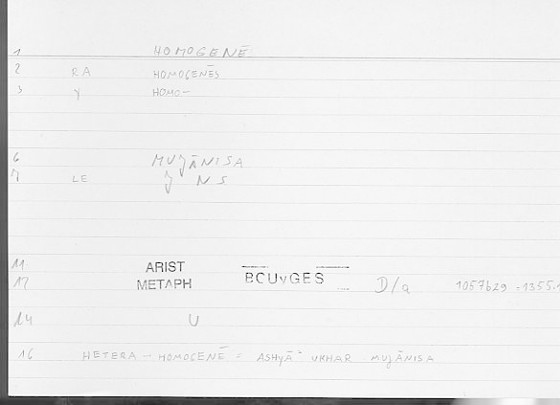 1 HOMOGENĒ
2 RA HOMOGENĒS
3 γ HOMO-
6 MUJĀNISA
7 LE J N S
11 ARIST
12 METAPH BOUyGES .... D/a 1057b29 = 1355.1
14 U
16 HETERA - HOMOGENĒ = ASHYĀ' UKHAR MUJĀNISA